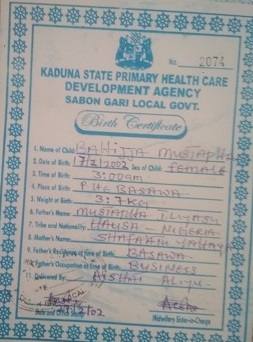 No. 2074
KADUNA STATE PRIMARY HEALTH CARE
DEVELOPMENT AGENCY
SABON GARI LOCAL GOVT.
Birth Certificate
1. Name of Child MUSTAPHA
2. Date of Birth 17/2/2002 Sex of Child FEMALE
3. Time of Birth 3:00am
4. Place of Birth PHC BASAWA
5. Weight of Birth 3:7KG
6. Father's Name MUSTAPHA ILIYASU
7. Tribe and Nationality HAUSA - NIGERIA
8. Mother's Name YAHAYA
9. Father's Residence at time of Birth BASAWA
Father's Occupation at time of Birth BUSINESS
11. Delivered By: ALIYU
Midwifery Sister-in-Charge